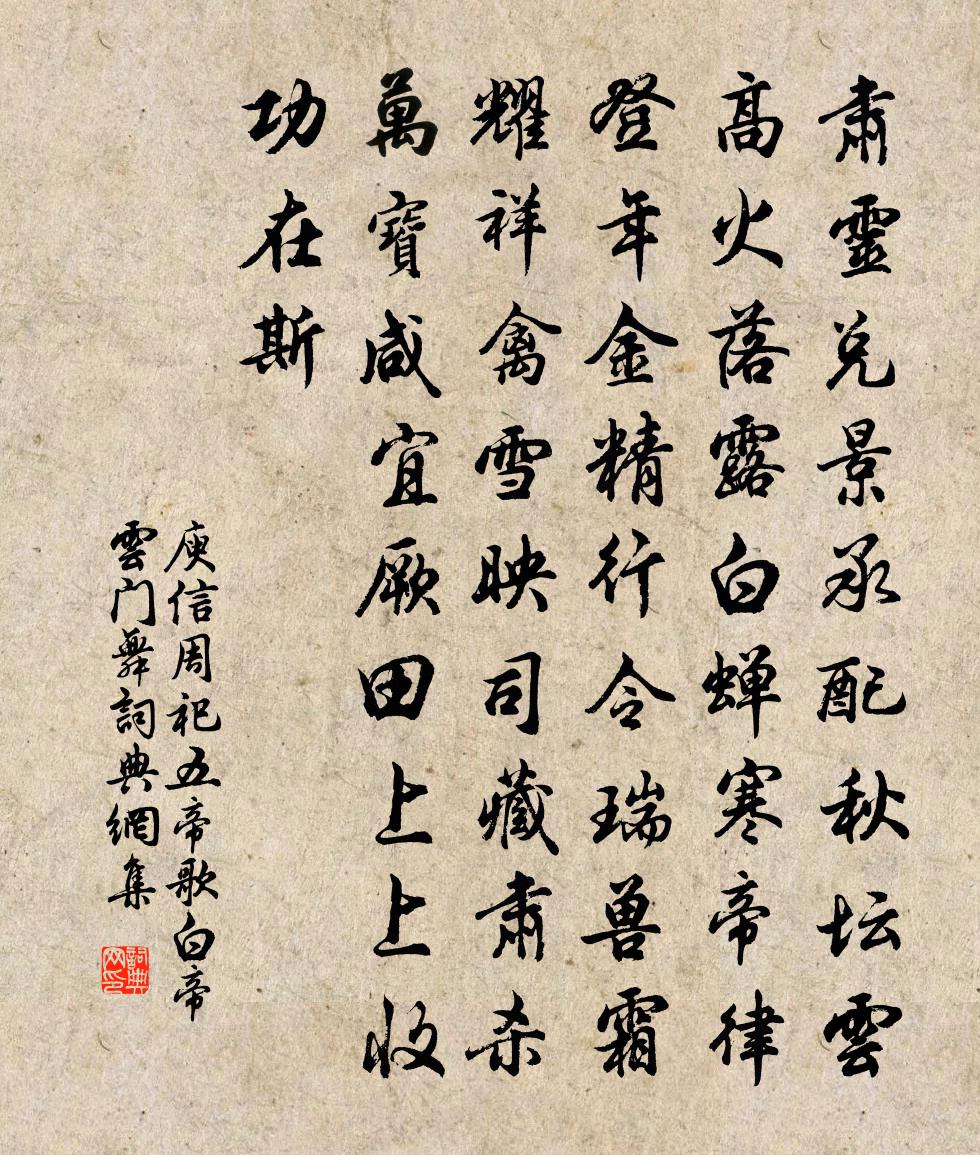 肅靈兑景承配秋坛雲
高火落露白蝉寒帝律
登年金精行令瑞兽霜
耀祥禽雪映司藏肅杀
萬寶咸宜厥田上上收
功在斯
庾信周祀五帝歌白帝
雲门舞詞典網集
詞典网印